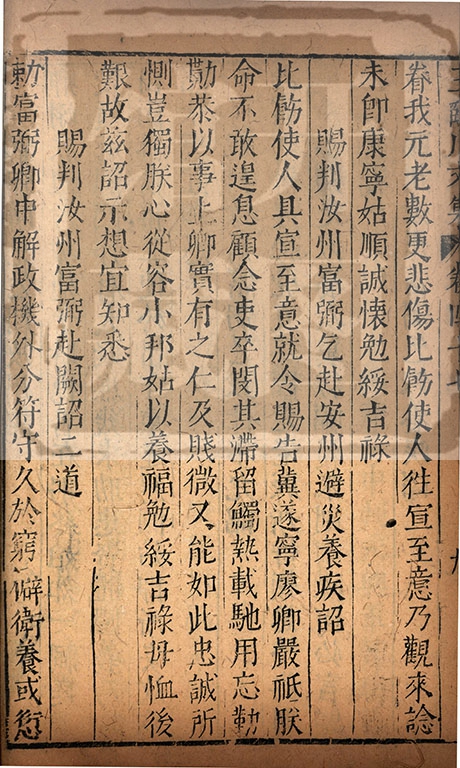 王臨川文集 卷四十七 九
眷我元老數更悲傷比飭使人徃宣至意乃觀來諗
未卽康寧姑順誠懷勉綏吉祿
賜判汝州富弼乞赴安州避災養疾詔
比飭使人具宣至意就令賜告冀遂寧廖卿嚴祇朕
命不敢遑息顧念吏卒閔其滯留觸熱載馳用忘勤
勩恭以事上卿實有之仁及賤微又能如此忠誠所
惻豈獨朕心從容小邦姑以養福勉綏吉祿毋恤後
艱故茲詔示想宜知悉
賜判汝州富弼赴闕詔二道
勑富弼卿申解政機外分符守久於窮僻衛養或愆